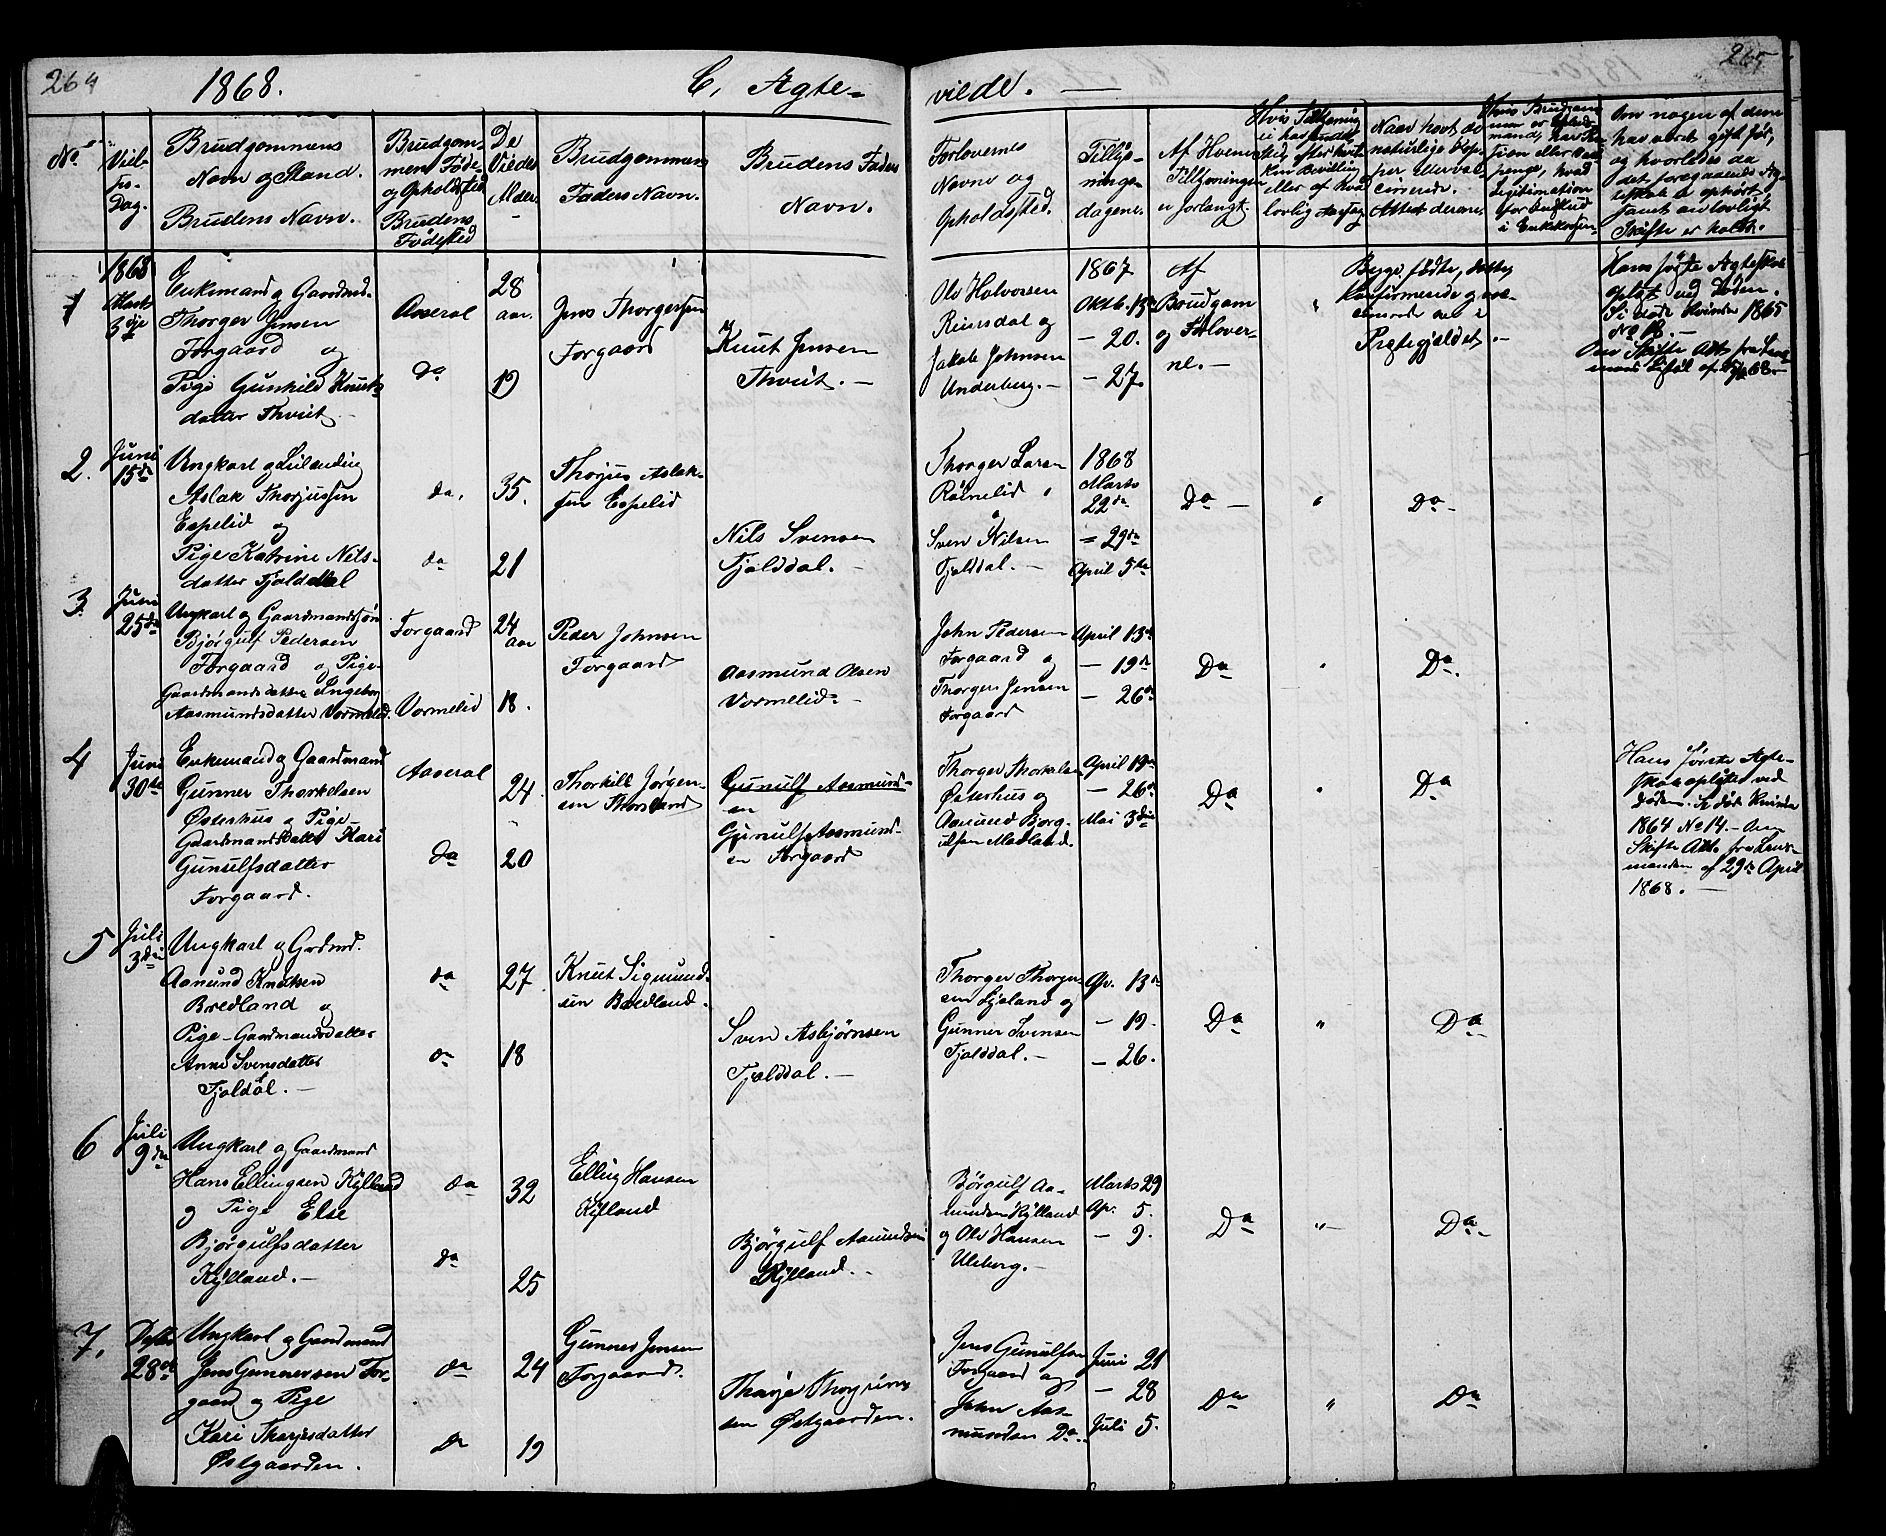 264
1868.
C. Agte-
viede.
265
No
Viel-
ses-
Dag.
Brudgommens
Navn og Stand.
Brudens Navn.
Brudgom-
mens Føde-
og Opholdsted
Brudens
Fødested
De
Viedes
Alder.
Brudgommens
Faders Navn.
Brudens Faders
Navn.
Forlovernes
Navne og
Opholdsted.
Tillys-
nings-
dagene.
Af Hvem
Tillysningen
er forlangt.
1
1868
Marts
3die
Enkemand og Gaardmd.
Thorger Jensen
Forgaard og
Pige Gunhild Knuts-
datter Thveit
Aaseral
da
28
aar.
19
Jens Thorgersen
Forgaard
Knut Jensen
Thveit. —
Ole Halvorsen
Reiersdal og
Jakob Johnsen
Underberg. —
1867
Oktb. 13de
— 20.
— 27.
Af
Brudgom
og Forlover-
ne. —
Bygd. fødte, dette
Konfirmerede og vac-
cinerede ere i
Præstegjældet. —
Hans første Ægteskab
opløst ved Døden.
Se døde Kvinder 1865
No 18. —
2.
Juni
15de
Ungkarl og Leilending
Aslak Thorjussen
Espelid og
Pige Katrine Nils-
datter Fjalddal
da.
da
35.
21
Thorjus Aslak-
sen Espelid
Nils Svensen
Fjalddal. —
Thorger Larsen
Røinelid
Sven Nilsen
Fjalddal. —
1868
Marts
22de
— 29de
April 5te
Da —
"
Da —
3.
Juni
25de
Ungkarl og Gaardmandssøn
Bjørgulf Pedersen
Forgaard og Pige-
Gaardmandsdatter Ingeborg
Aasmundsdatter Vormelid.
Forgaard
Vormelid
24
aar
18.
Peder Johnsen
Forgaard
Aasmund Olsen
Vormelid. —
John Pedersen
Forgaard og
Thorger Jensen
Forgaard
April 13de
— 19de
— 26de
Da
"
Da.
4
Juni
30te
Enkemand og Gaardmand
Gunner Thorkelsen
Østerhus og Pige-
Gaardmandsdatter Kari
Gunulfsdatter
Forgaard.
Aaseral
da
24.
20
Thorkild Jørgen-
sen Thorsland
Gunulf Aasmund-
sen
Gunulf Aasmund-
sen Forgaard
Thorger Thorkelsen
Østerhus og
Aanund Bjorg-
ulfsen Madland.
April 19de
— 26de
Mai 3die
Da
"
Da
Hans første Ægte-
skab opløst ved
døden. Se døde Kvinder
1864 No 14. — Om
Skifte Att. fra Lens-
manden af 29de April
1868. —
5
Juli
3die
Ungkarl og Grdmd.
Aanund Knutsen
Bredland og
Pige-Gaardmandsdatter
Anne Svensdatter
Fjaldal. —
da
da
27
18
Knut Sigmund-
sen Bredland.
Sven Asbjørnsen
Fjalddal. —
Thorger Thorger-
sen Ljosland og
Gunner Svensen
Fjalddal. —
Ap. 13de
— 19.
— 26.
Da
"
Da
6
Juli
9de
Ungkarl og Gaardmand
Hans Ellingsen Kylland
og Pige Else
Bjørgulfsdatter
Kylland. —
da
da
32
25
Elling Hansen
Kylland
Bjørgulf Aanundsen
Kylland. —
Børgulf Aa-
nundsen Kylland
og Ole Hansen
Uleberg. —
Marts 29
Ap. 5.
— 9.
Da
"
Da
7.
28de
Ungkarl og Gaardmand
Jens Gunnersen For-
gaard og Pige
Kari Tharjesdatter
Østgaarden.
da
Da
24
19
Gunner Jensen
Forgaard.
Tharje
sen Østgaarden.
Jens Gunulfsen
Forgaard og
John Aas-
mundsen Do.
Juni 21
— 28
Juli 5.
Da
"
Da